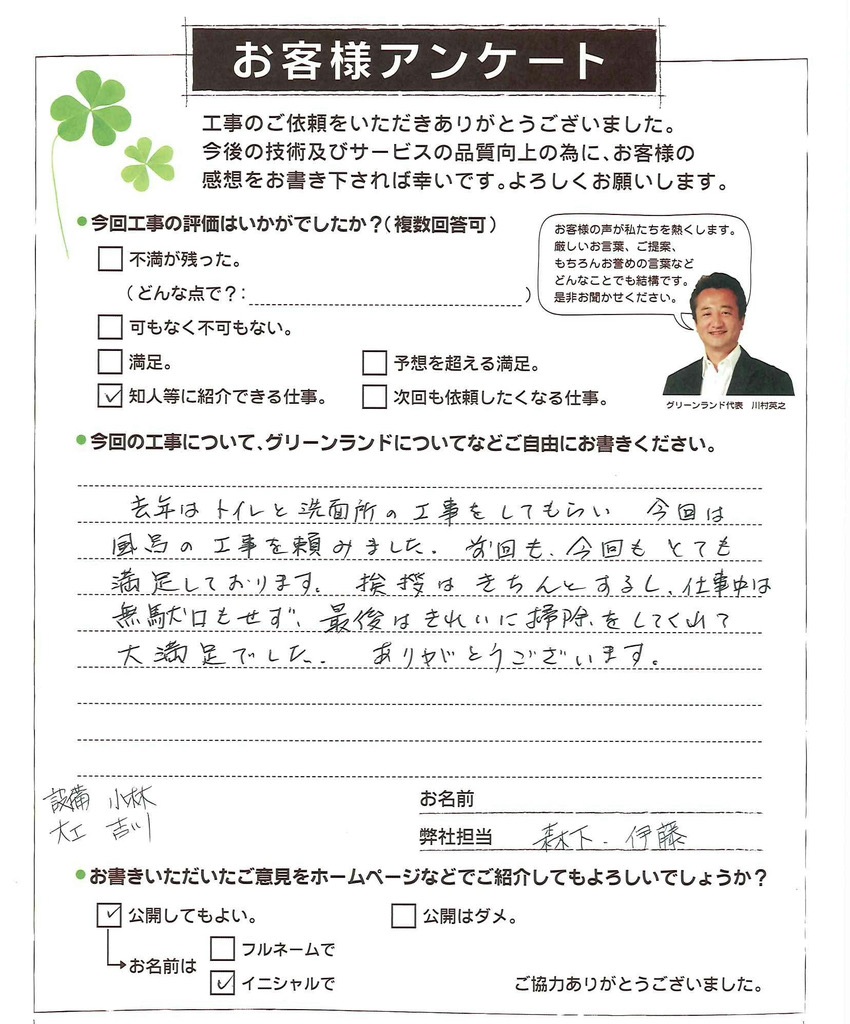 お客様アンケート
工事のご依頼をいただきありがとうございました。
今後の技術及びサービスの品質向上の為に、お客様の
感想をお書き下されば幸いです。よろしくお願いします。
今回工事の評価はいかがでしたか?(複数回答可)
不満が残った。
(どんな点で?: )
可もなく不可もない。
満足。
予想を超える満足。
知人等に紹介できる仕事。
次回も依頼したくなる仕事。
お客様の声が私たちを熱くします。
厳しいお言葉、ご提案、
もちろんお誉めの言葉など
どんなことでも結構です。
是非お聞かせください。
グリーンランド代表 川村英之
今回の工事について、グリーンランドについてなどご自由にお書きください。
去年はトイレと洗面所の工事をしてもらい 今回は
風呂の工事を頼みました。前回も、今回もとても
満足しております。挨拶はきちんとするし、仕事中は
無駄口もせず、最後はきれいに掃除をしてくれて
大満足でした。 ありがとうございます。
設備 小林
大工 吉川
お名前
弊社担当 森下.伊藤
お書きいただいたご意見をホームページなどでご紹介してもよろしいでしょうか?
公開してもよい。
公開はダメ。
お名前は
フルネームで
イニシャルで
ご協力ありがとうございました。